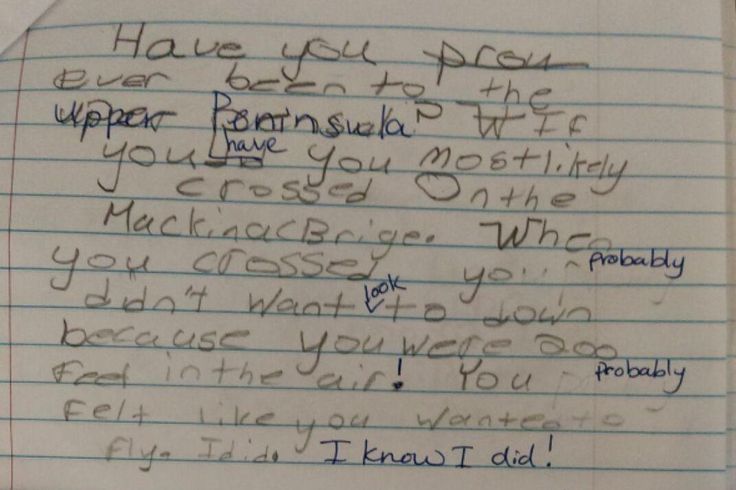 Have you prou
ever been to the
upper Peninsula? W If
you have you most likely
crossed On the
MackinacBrige. When
you crossed you probably
didn't want look to down
because you were 200
feet in the air! You probably
felt like you wanted to
fly. I did. I know I did!